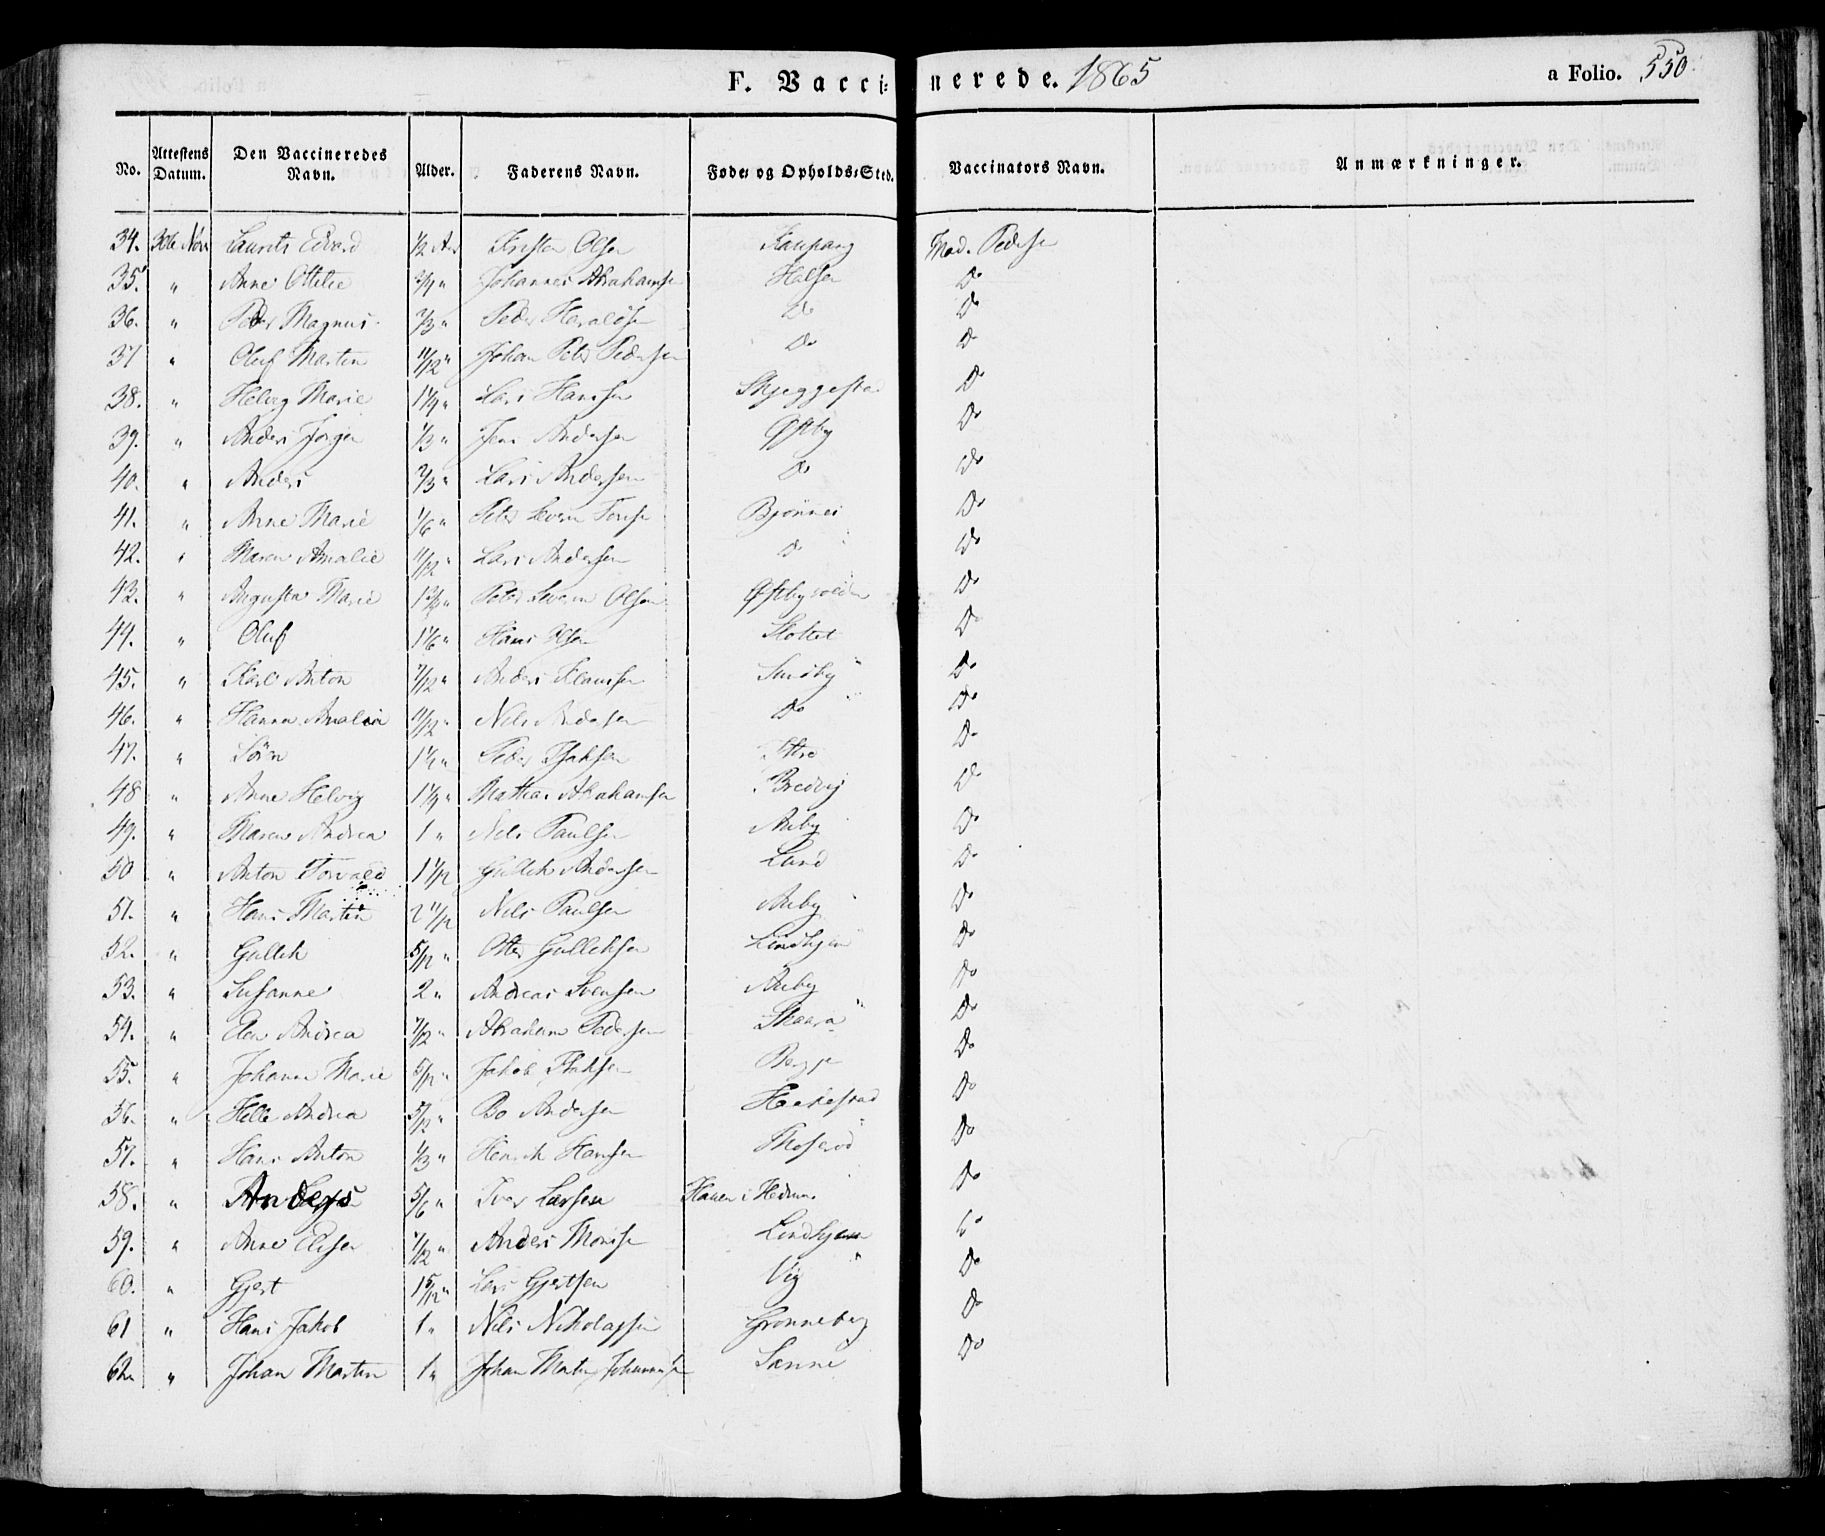 F. Vaccinerede. 1865 a Folio. 550
No. Attestens Datum. Den Vaccineredes Navn. Alder. Faderens Navn. Føde- og Opholds-Sted. Vaccinators Navn. Anmærkninger.
34. 30te Novr Laurits Edvard 1/2 Aar Kristen Olsen Kaupang Mad. Pedersen
35. " Anne Ottilie 3/4 " Johannes Abrahamsen Halsen Do
36. " Peder Magnus 2/3 " Peder Haraldsen Do Do
37 " Oluf Martin 11/12 " Johan Peter Pedersen Do Do
38. " Helvig Marie 1 1/4 " Lars Hansen Skjeggestad Do
39. " Anders Jørgen 1/3 " Jens Andersen Østby Do
40. " Anders 2/3 " Lars Andersen Do Do
41. " Anne Marie 1/6 " Peter Severin Bjønnes Do
42. " Maren Amalie 11/12 " Lars Andersen Do Do
43. " Augusta Marie Peter Severin Olsen Do
44. " Oluf 1 1/6 " Hans Olsen Slottet Do
45. " Karl Anton 7/12 " Anders Klausen Sundby Do
46. " Hanna Amalia 11/12 " Nils Andersen Do Do
47. " Sørn 1 1/4 " Peder Isaksen Do
48 " Anne Helvig 1 1/4 " Mathias Abrahamsen Bredvig Do
49. " Maren Andrea 1 " Nils Paulsen Auby Do
50 " Anton Torvald 1 1/12 Gullik Andersen Lund Do
51. " Hans Martin 2 11/12 Nils Paulsen Auby Do
52. " Gullik 5/12 " Otter Gulliksen Lindhjem Do
53. " Susanne 2 " Andreas Svensen Auby Do
54. " Elen Andrea 7/12 " Abraham Pedersen Skaara Do
55. " Johanne Marie 5/12 " Jakob Isaksen Do
56. " Helle Andrea 5/12 " Bo Andersen Do
57. " Hans Anton 1/3 " Henrik Hansen Do
58. " Anders 5/6 " Iver Larsen Haven i Hedrum Do
59. " Anne Elise 7/12 " Anders Lindhjem Do
60. " Gjert 1 5/12 " Lars Gjertsen Vig Do
61 " Hans Jakob 1 " Nils Nikolaysen Grønneberg Do
62. " Johan Martin 1 " Johan Martin Johannesen Sanne Do